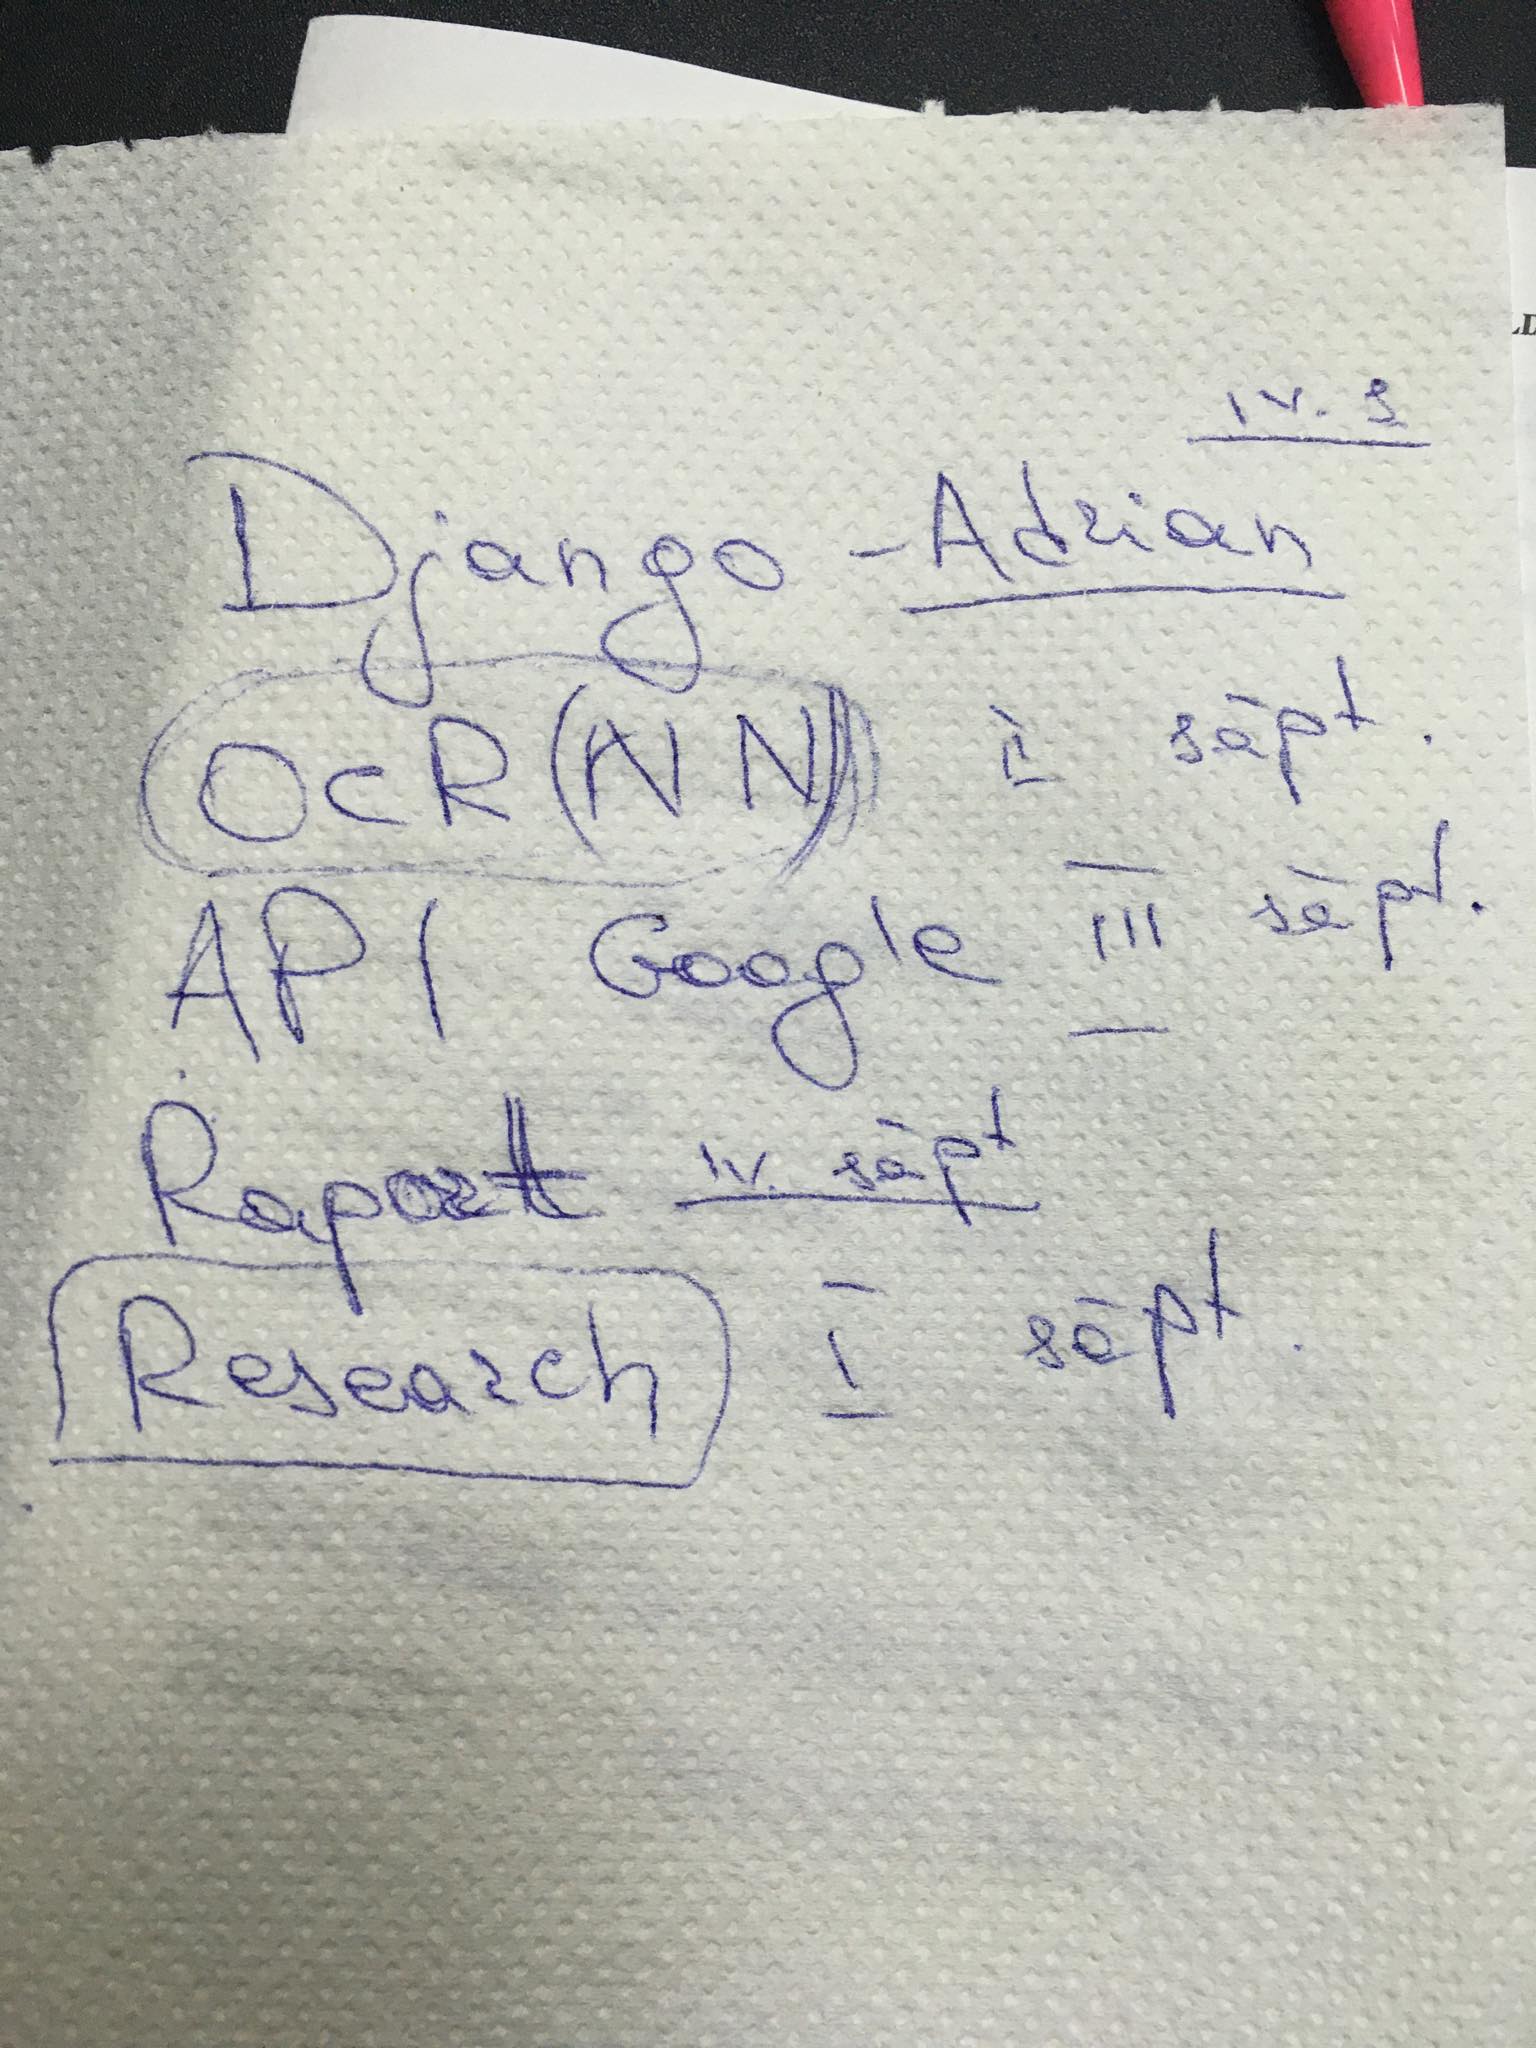 IV. s
Django - Adrian
OCR (NN) II săpt.
API Google III săpt.
Raport IV. săpt
Research I săpt.